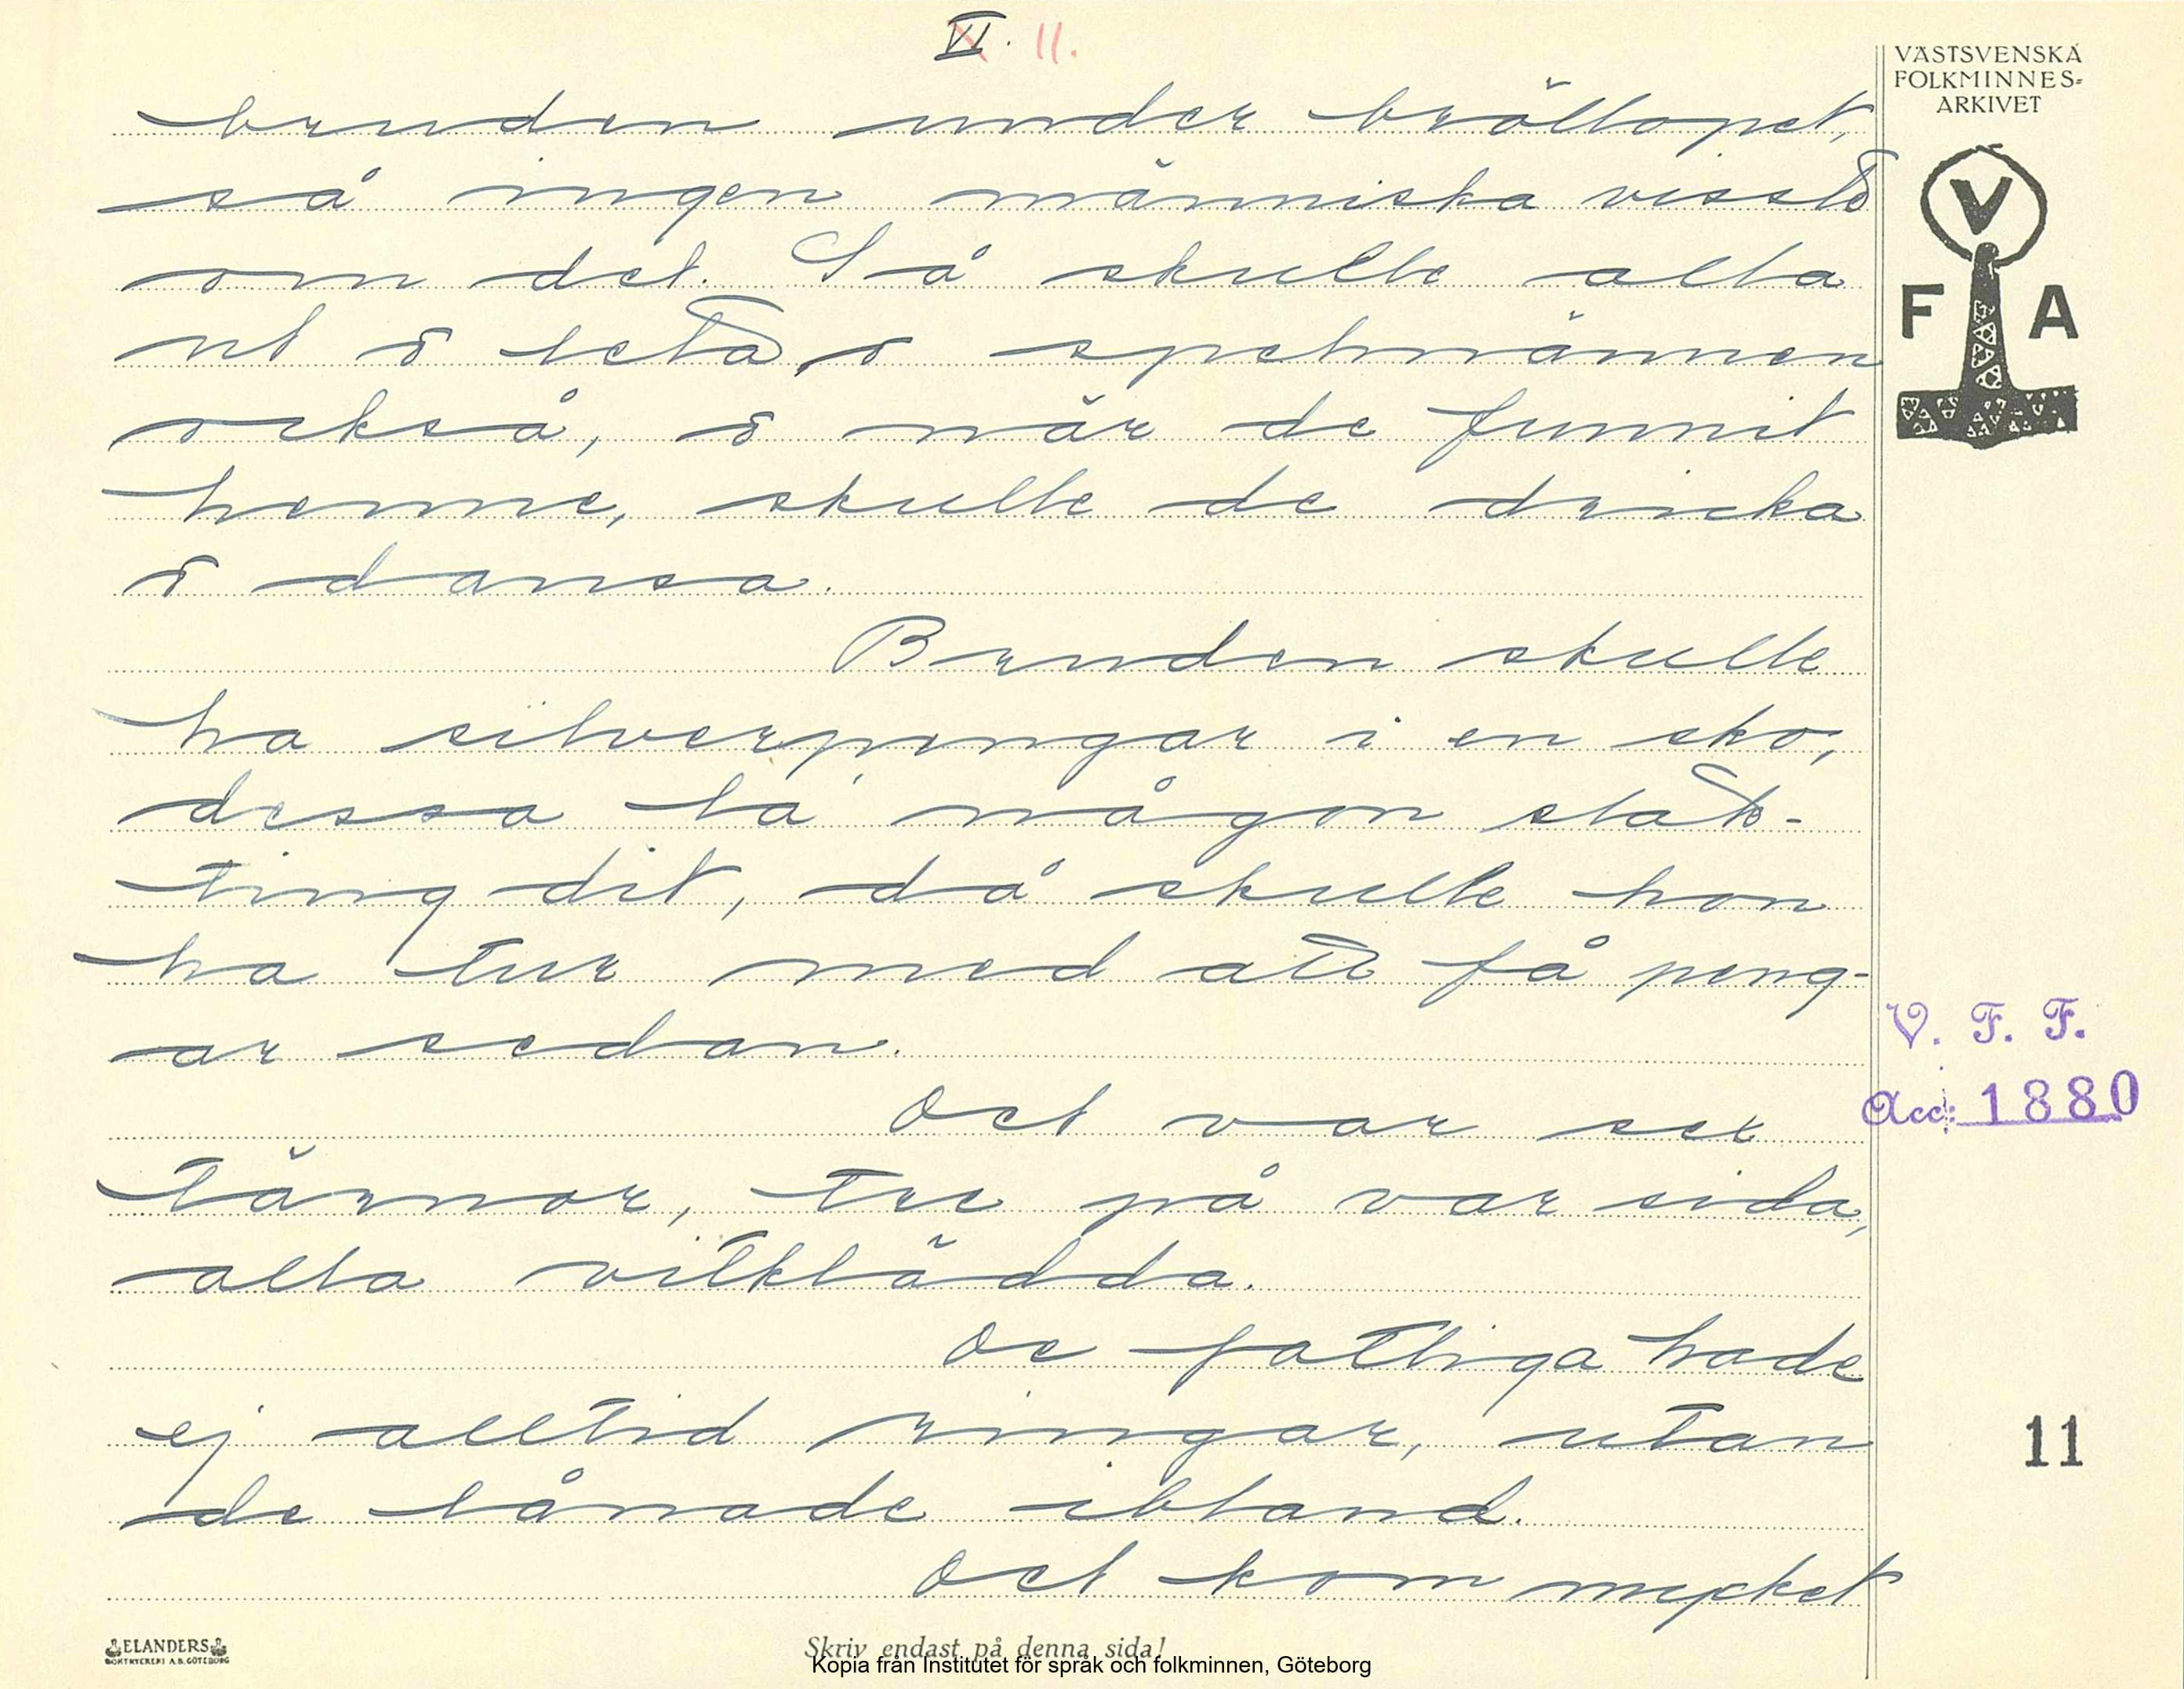 VI. 11.
VÄSTSVENSKA
FOLKMINNES=
ARKIVET
V
F A
bruden under bröllopet,
så ingen människa visste
om det. Så skulle alla
ut å leta, å spelmännen
också, å när de funnit
henne, skulle de dricka
å dansa.
Bruden skulle
ha silverpengar i en sko,
dessa la någon släk-
ting dit, då skulle hon
ha tur med att få peng-
ar sedan.
V. F. F.
Acc: 1880
Det var sex
tärnor, tre på var sida,
alla vitklädda.
De fattiga hade
ej alltid ringar, utan
11
de lånade ibland.
Det kom mycket
ELANDERS
BOKTRYCKERI A.B. GÖTEBORG
Skriv endast på denna sida!
Kopia från Institutet för språk och folkminnen, Göteborg